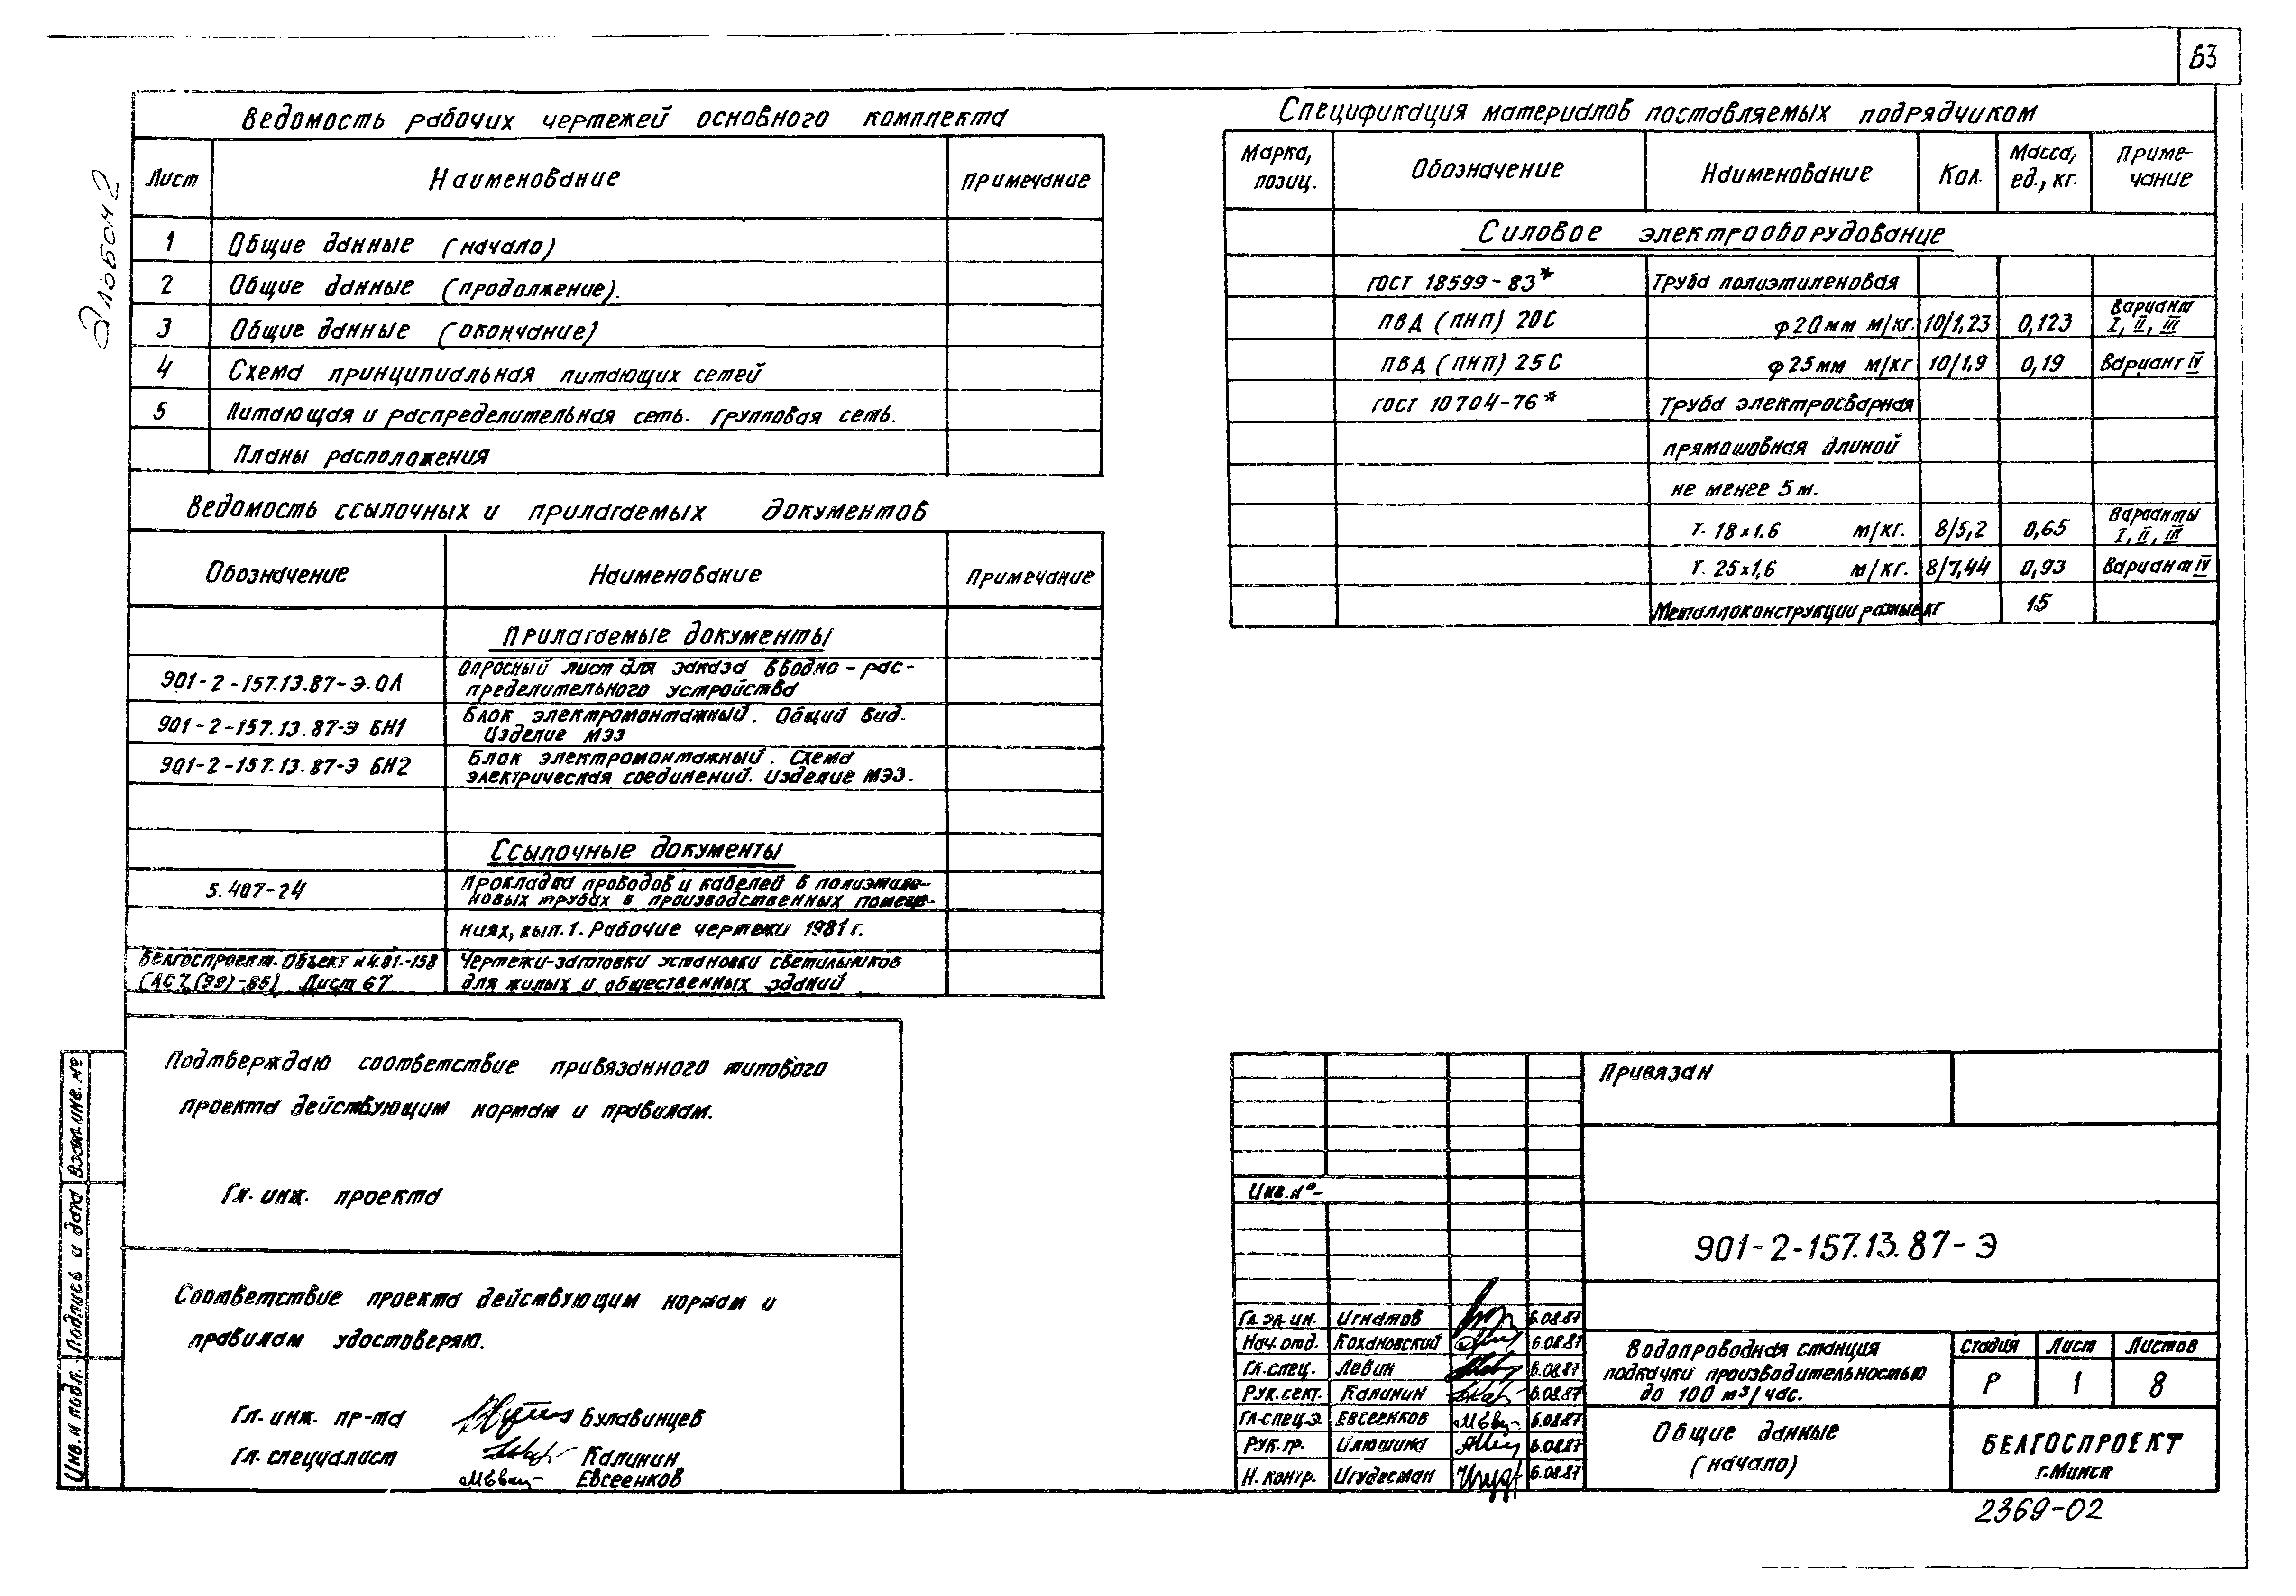 63
Альбом 2
Ведомость рабочих чертежей основного комплекта
Лист Наименование Примечание
1 Общие данные (начало)
2 Общие данные (продолжение).
3 Общие данные (окончание)
4 Схема принципиальная питающих сетей
5 Питающая и распределительная сеть. Групповая сеть.
Планы расположения
Ведомость ссылочных и прилагаемых документов
Обозначение Наименование Примечание
Прилагаемые документы
901-2-157.13.87-Э.ОЛ Опросный лист для заказа вводно-рас-
пределительного устройства
901-2-157.13.87-Э БН1 Блок электромонтажный. Общий вид.
Изделие МЭЗ
901-2-157.13.87-Э БН2 Блок электромонтажный. Схема
электрическая соединений. Изделие МЭЗ.
Ссылочные документы
5.407-24 Прокладка проводов и кабелей в полиэтиле-
новых трубах в производственных помеще-
ниях, вып.1. Рабочие чертежи 1981г.
Белгоспроект. Объект №4.01.-158 Чертежи-заготовки установки светильников
Лист 67 для жилых и общественных зданий
Подтверждаю соответствие привязанного типового
проекта действующим нормам и правилам.
Гл. инж. проекта
Соответствие проекта действующим нормам и
правилам удостоверяю.
Гл. инж. пр-та Булавинцев
Гл. специалист Калинин
Евсеенков
Инв.N подл. Подпись и дата Взам.инв.№
Спецификация материалов поставляемых подрядчиком
Марка, позиц. Обозначение Наименование Кол. Масса, ед., кг. Приме-чание
Силовое электрооборудование
ГОСТ 18599-83* Труба полиэтиленовая
ПВД (ПНП) 20С φ20мм м/кг. 10/1,23 0,123 Вариант I, II, III
ПВД (ПНП) 25С φ25мм м/кг 10/1,9 0,19 Вариант IV
ГОСТ 10704-76* Труба электросварная
прямошовная длиной
не менее 5м.
т. 18х1.6 м/кг. 8/5,2 0,65 Варианты I, II, III
т. 25х1,6 м/кг. 8/7,44 0,93 Вариант IV
Металлоконструкции разные кг 15
Привязан
Инв.№
901-2-157.13.87-Э
Гл. эл. ин. Игнатов 6.08.87
Нач. отд. Кохановский 6.08.87
Гл. спец. Левин 6.08.87
Рук. сект. Калинин 6.08.87
Гл. спец.э. Евсеенков 6.08.87
Рук. гр. Илюшина 6.08.87
Н. контр. Игудесман 6.08.87
Водопроводная станция
подкачки производительностью
до 100 м³/час.
Стадия Лист Листов
Р 1 8
Общие данные
(начало)
БЕЛГОСПРОЕКТ
г.Минск
2369-02